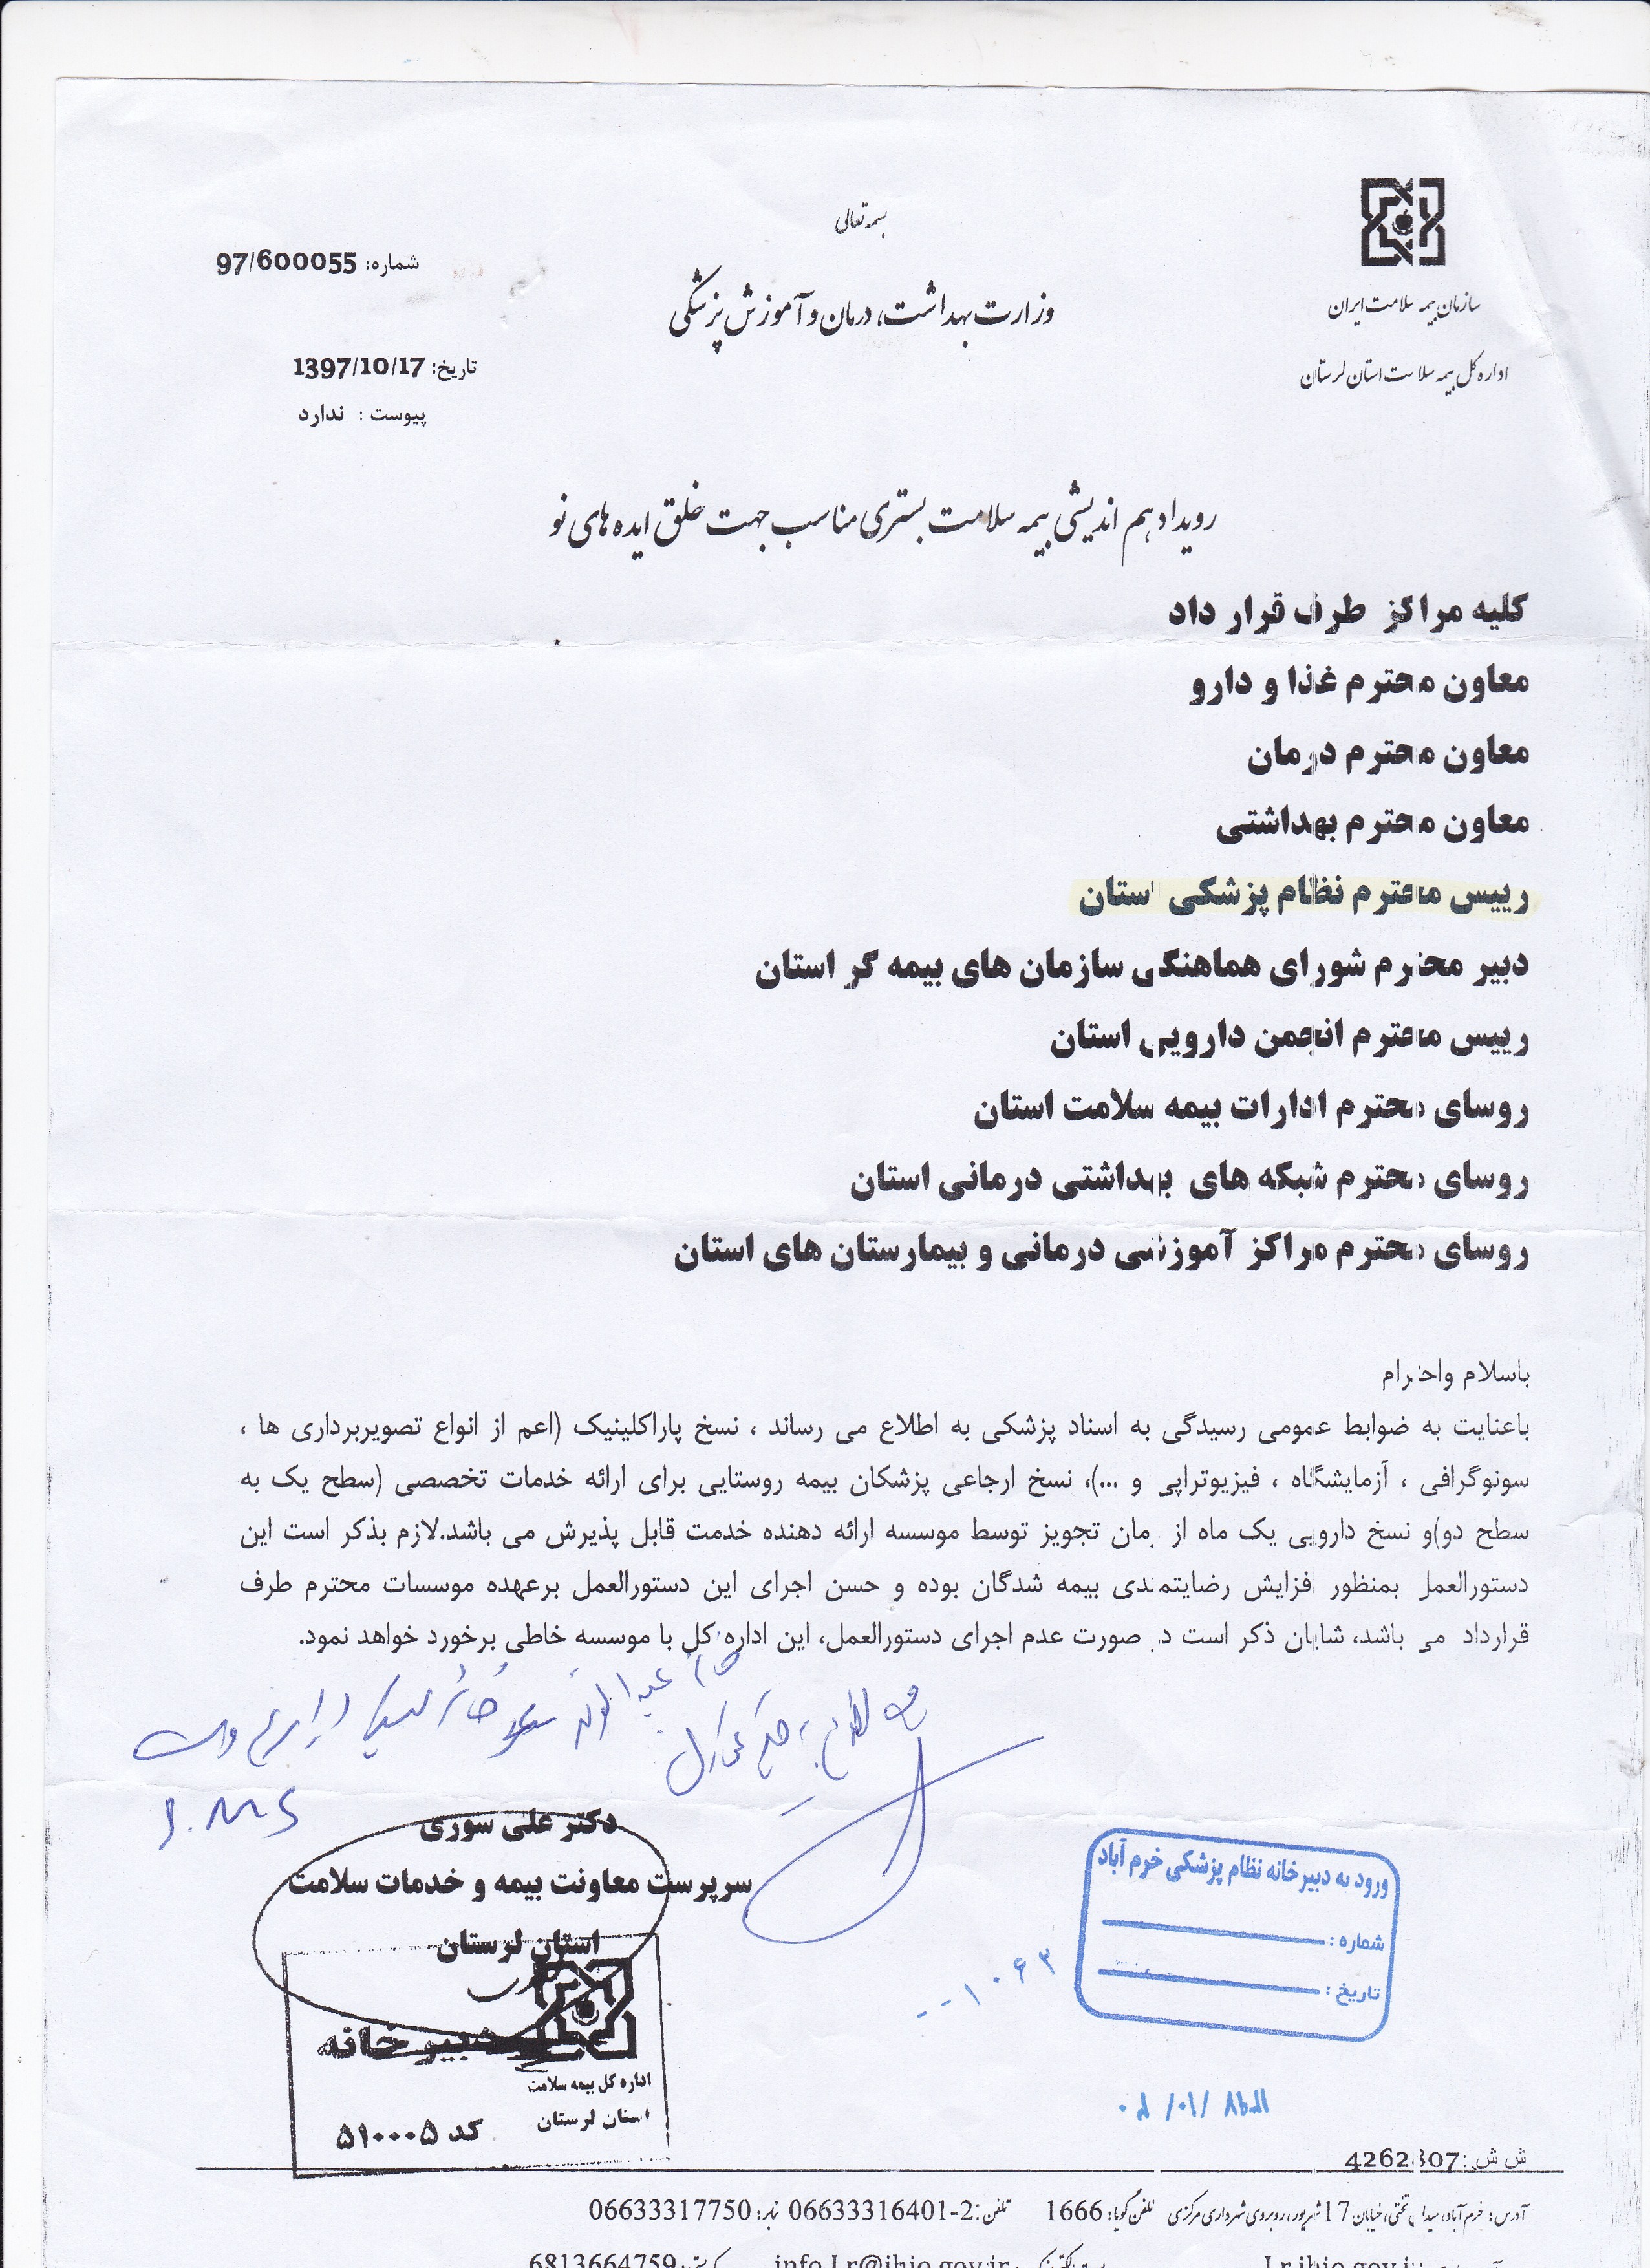 بسمه تعالی
سازمان بیمه سلامت ایران
اداره کل بیمه سلامت استان لرستان
وزارت بهداشت، درمان و آموزش پزشکی
شماره: 97/600055
تاریخ: 1397/10/17
پیوست : ندارد
رویداد هم اندیشی بیمه سلامت بستری مناسب جهت خلق ایده های نو
کلیه مراکز طرف قرار داد
معاون محترم غذا و دارو
معاون محترم درمان
معاون محترم بهداشتی
رییس محترم نظام پزشکی استان
دبیر محترم شورای هماهنگی سازمان های بیمه گر استان
رییس محترم انجمن دارویی استان
روسای محترم ادارات بیمه سلامت استان
روسای محترم شبکه های بهداشتی درمانی استان
روسای محترم مراکز آموزشی درمانی و بیمارستان های استان
باسلام واحترام
باعنایت به ضوابط عمومی رسیدگی به اسناد پزشکی به اطلاع می رساند ، نسخ پاراکلینیک (اعم از انواع تصویربرداری ها ،
سونوگرافی ، آزمایشگاه ، فیزیوتراپی و ...)، نسخ ارجاعی پزشکان بیمه روستایی برای ارائه خدمات تخصصی (سطح یک به
سطح دو)و نسخ دارویی یک ماه از زمان تجویز توسط موسسه ارائه دهنده خدمت قابل پذیرش می باشد.لازم بذکر است این
دستورالعمل بمنظور افزایش رضایتمندی بیمه شدگان بوده و حسن اجرای این دستورالعمل برعهده موسسات محترم طرف
قرارداد می باشد، شایان ذکر است در صورت عدم اجرای دستورالعمل، این اداره کل با موسسه خاطی برخورد خواهد نمود.
دکتر علی سوری
سرپرست معاونت بیمه و خدمات سلامت
استان لرستان
دبیرخانه
اداره کل بیمه سلامت
استان لرستان
کد ۵۱۰۰۰۵
ورود به دبیرخانه نظام پزشکی خرم آباد
شماره :
تاریخ :
۱۰۶۳
ش ش: 4262807
آدرس: خرم آباد، میدان تختی، خیابان 17 شهریور، روبروی شهرداری مرکزی تلفن گویا: 1666 تلفن: 06633316401-2 نمابر: 06633317750
Lr.ihio.gov.ir info.Lr@ihio.gov.ir 6813664759